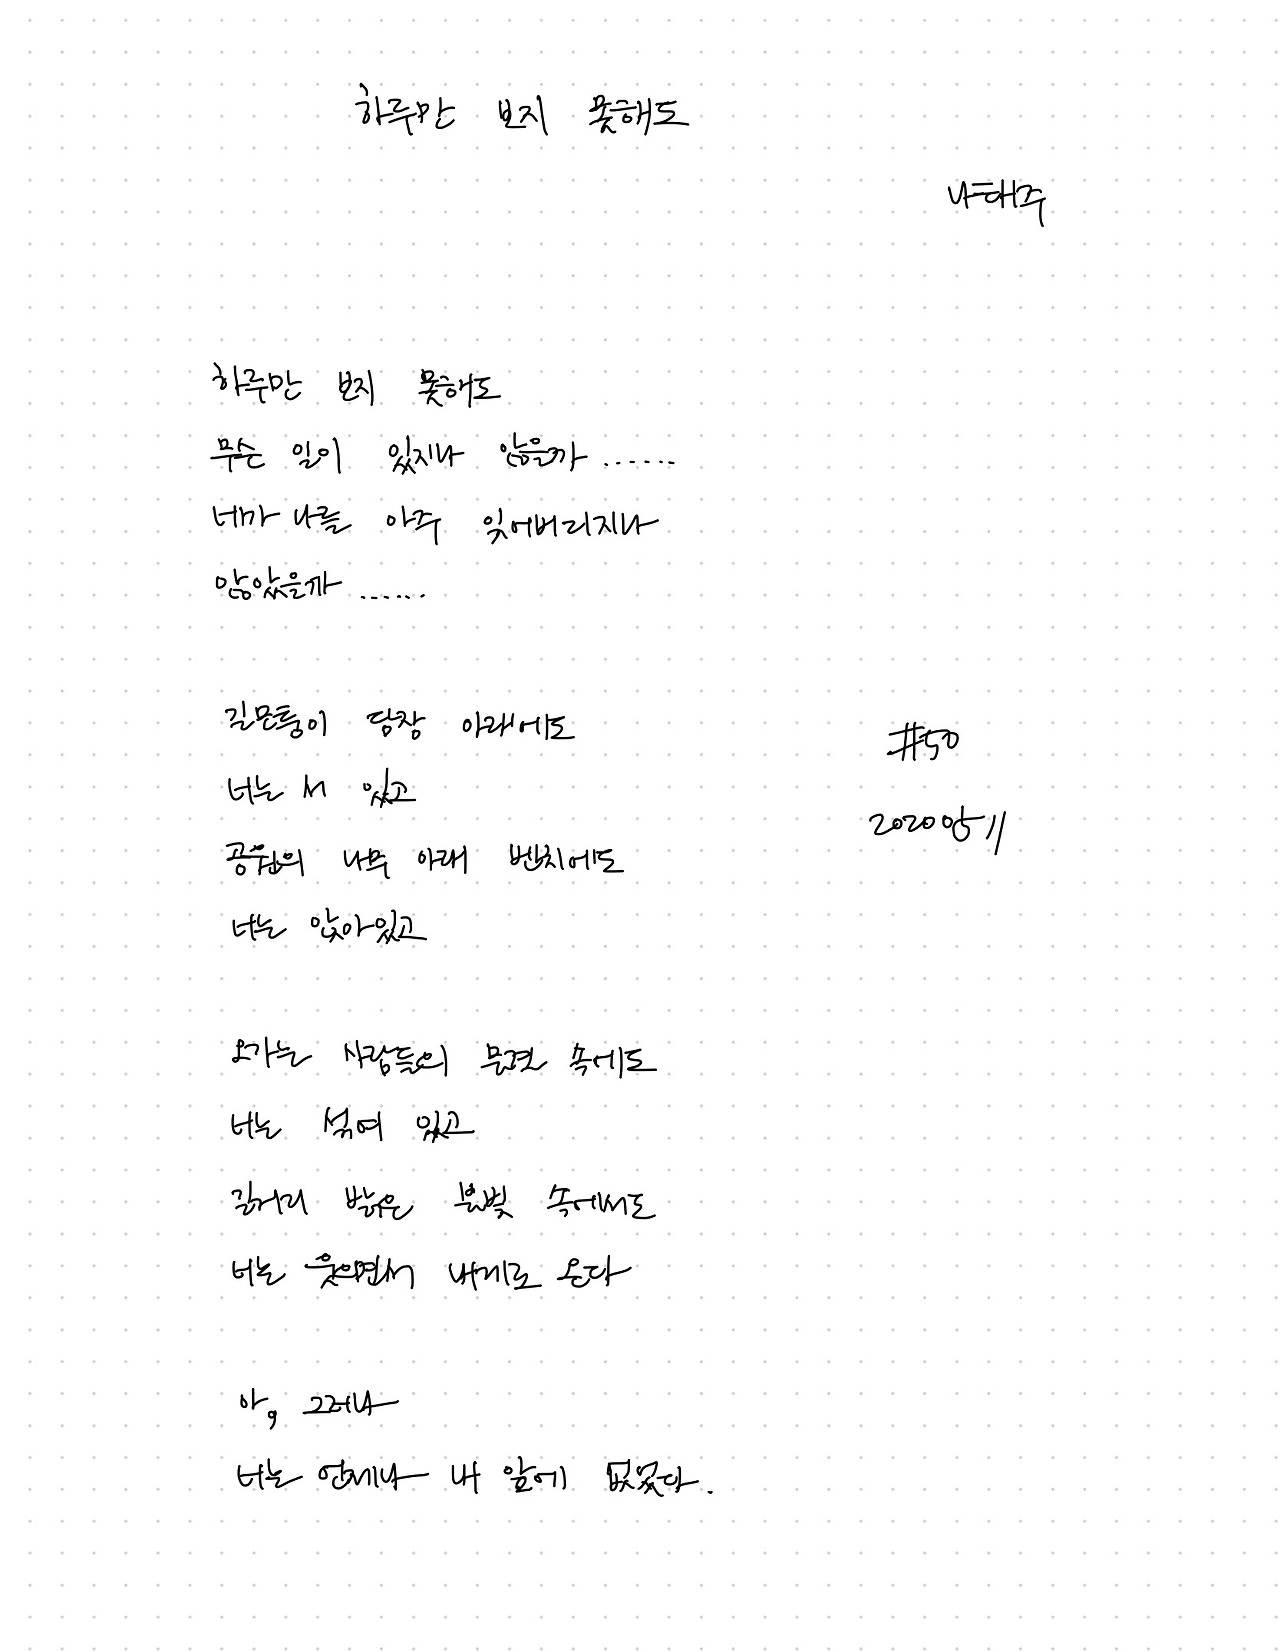 하루만 보지 못해도
나태주
하루만 보지 못해도
무슨 일이 있지나 않을까 ......
네가 나를 아주 잊어버리지나
않았을까 ......
길모퉁이 담장 아래에도
너는 서 있고
공원의 나무 아래 벤치에도
너는 앉아있고
오가는 사람들의 물결 속에도
너는 섞여 있고
길거리 밝은 불빛 속에서도
너는 웃으면서 내게로 온다
아, 그러나
너는 언제나 내 앞에 없었다.
#50
2020